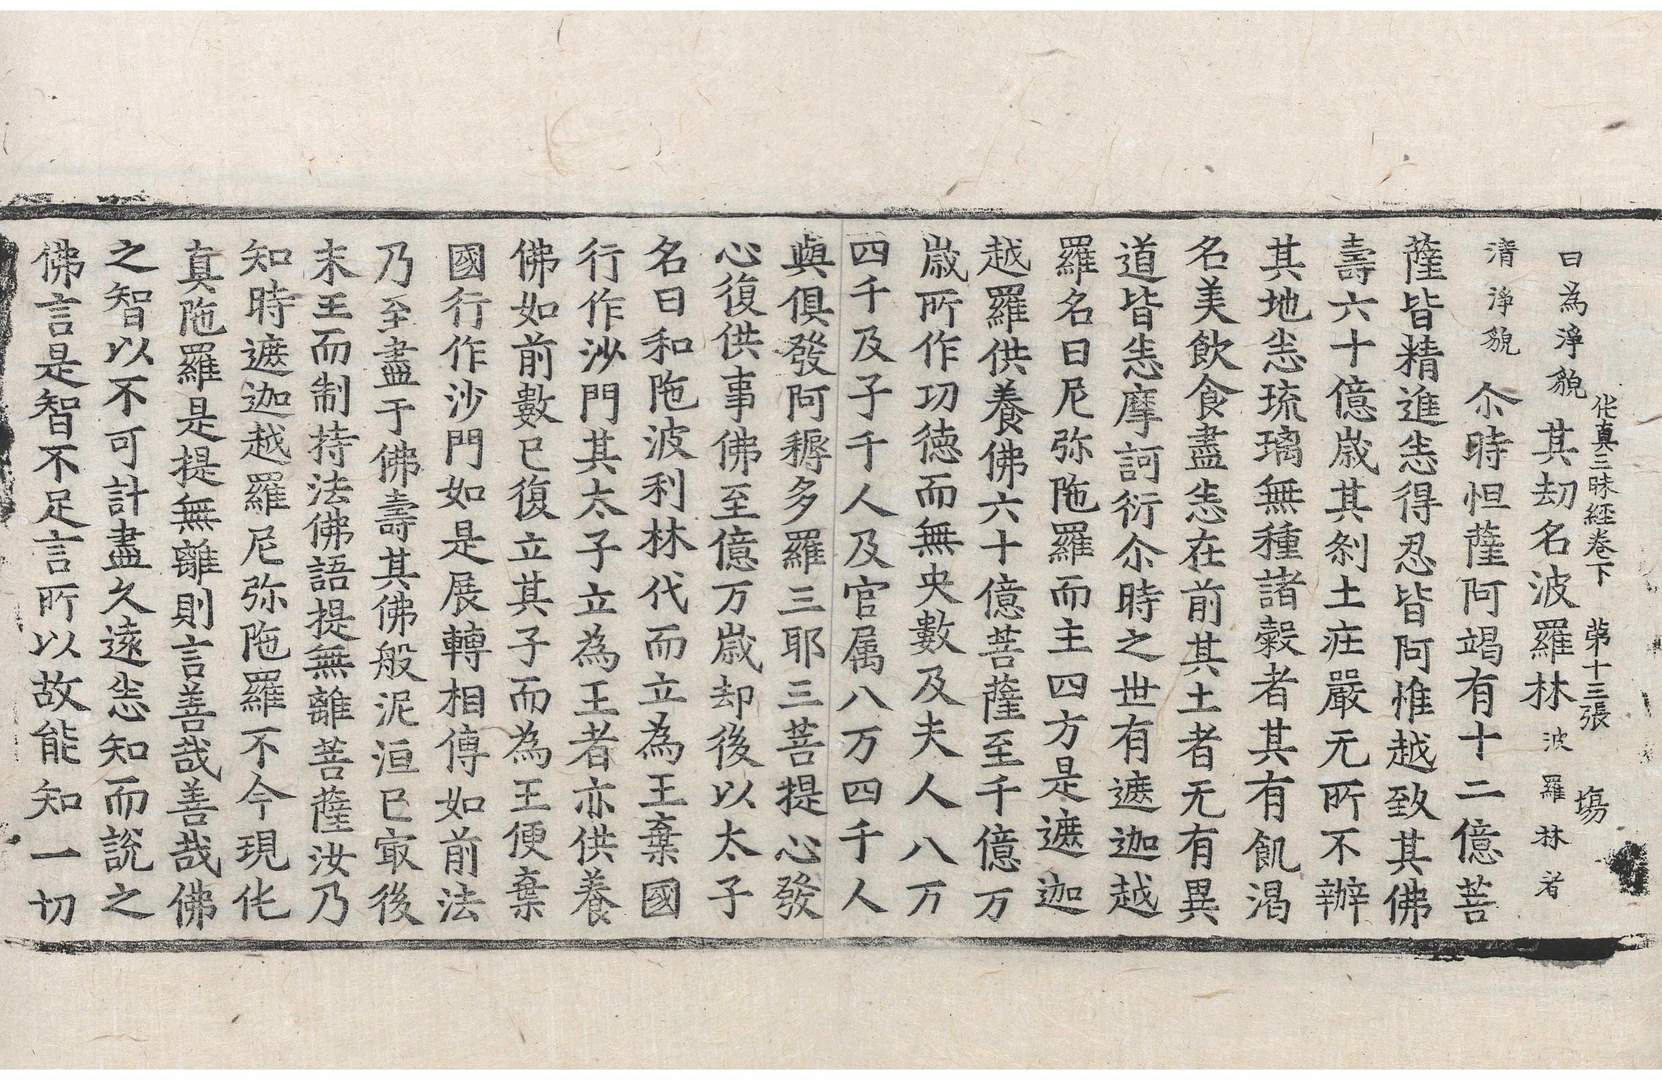 伅真三昧經卷下　第十三張　塲
曰為淨貌其劫名波羅林波羅林者
清淨貌尒時怛薩阿竭有十二億菩
薩皆精進悉得忍皆阿惟越致其佛
壽六十億歲其刹土疘嚴无所不辦
其地悉琉璃無種諸穀者其有飢渴
名美飲食盡悉在前其土者无有異
道皆悉摩訶衍尒時之世有遮迦越
羅名曰尼弥陁羅而主四方是遮迦
越羅供養佛六十億菩薩至千億万
歲所作功德而無央數及夫人八万
四千及子千人及官属八万四千人
與俱發阿耨多羅三耶三菩提心發
心復供事佛至億万歲却後以太子
名曰和陁波利林代而立為王棄國
行作沙門其太子立為王者亦供養
佛如前數已復立其子而為王便棄
國行作沙門如是展轉相傳如前法
乃至盡于佛壽其佛般泥洹已冣後
末王而制持法佛語提無離菩薩汝乃
知時遮迦越羅尼弥陁羅不今現伅
真陁羅是提無離則言善哉善哉佛
之智以不可計盡久遠悉知而說之
佛言是智不足言所以故能知一切